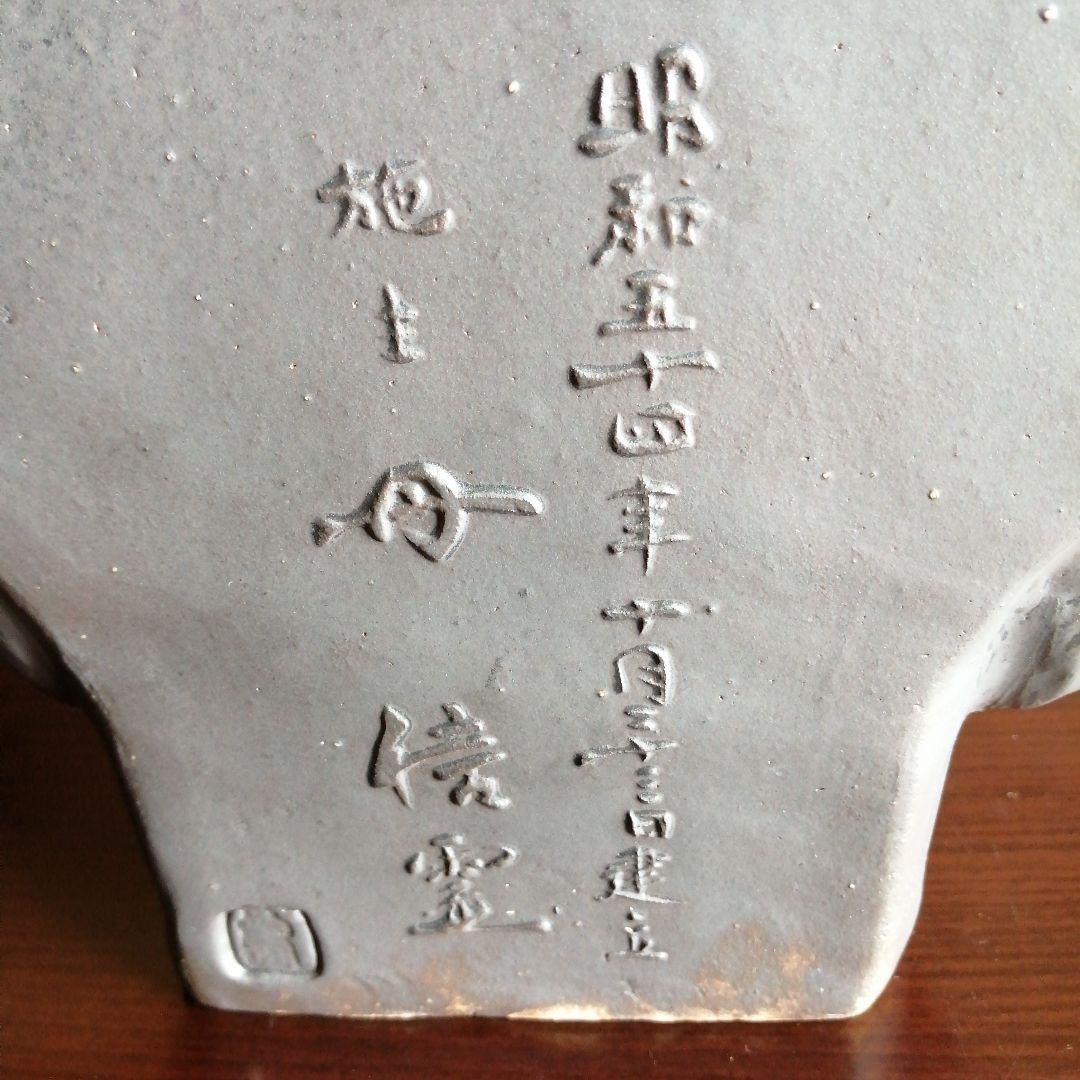 昭和五十四年十月二十三日建立
施主 母 信靈